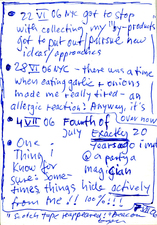 22 VI 06 NYC got to stop
with collecting my "by-products
got to put out / pursue new
ideas/approaches
28 VII 06 NYC - There was a time
when eating garlic & onions
made me really tired - an
allergic reaction! Anyway, it's
4 VII 06 Fourth of over now
July Exactly 20
One years ago i met
Thing @ a party a
i know for magician
sure: some-
times things hide actively
from me!! 100%!!!
"Scotch tape reappeared!